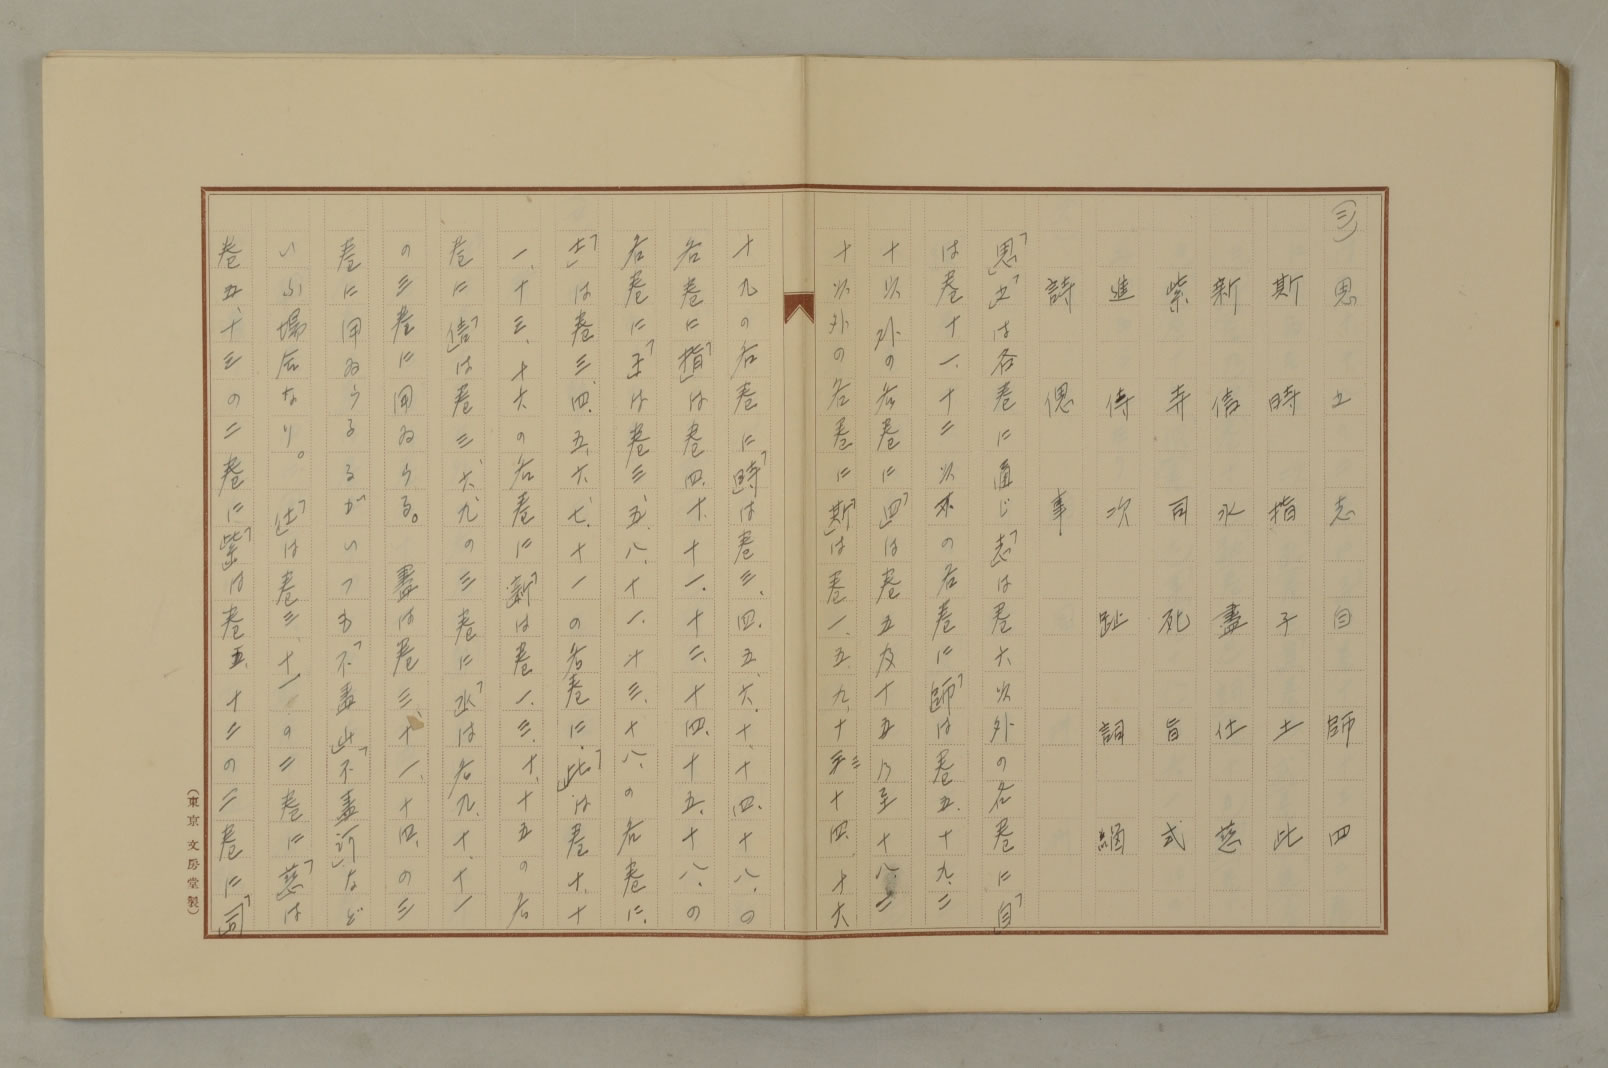 (シ) 思 之 志 自 師 四
斯 時 指 子 士 此
新 信 水 盡 仕 慈
紫 寺 司 死 旨 式
進 侍 次 趾 詞
詩 偲 事
「思」「之」は各巻に通じ「志」は巻六以外の各巻に「自」
は巻十一、十二以外の各巻に「師」は巻五、十九、二
十以外の各巻に「四」は巻五及十五乃至十八、二
十以外の各巻に「斯」は巻一、五、九、十三、十四、十六
十九の各巻に「時」は巻三、四、五、六、十、十四、十八、の
各巻に「指」は巻四、十、十一、十二、十四、十五、十八、の
各巻に「子」は巻三、五、八、十一、十三、十八、の各巻に、
「士」は巻三、四、五、六、七、十一の各巻に、「此」は巻十、十
一、十三、十六の各巻に「新」は巻一、三、十、十五の各
巻に「信」は巻三、六、九の三巻に「水」は各九、十、十一
の三巻に用ゐらる。盡は巻三、十一、十四、の三
巻に用ゐらるるがいつも「不盡」此「不盡河」など
いふ場合なり。「仕」は巻三、十一の二巻に「慈」は
巻五、十三の二巻に「紫」は巻五、十二の二巻に「司」
(東京 文房堂製)